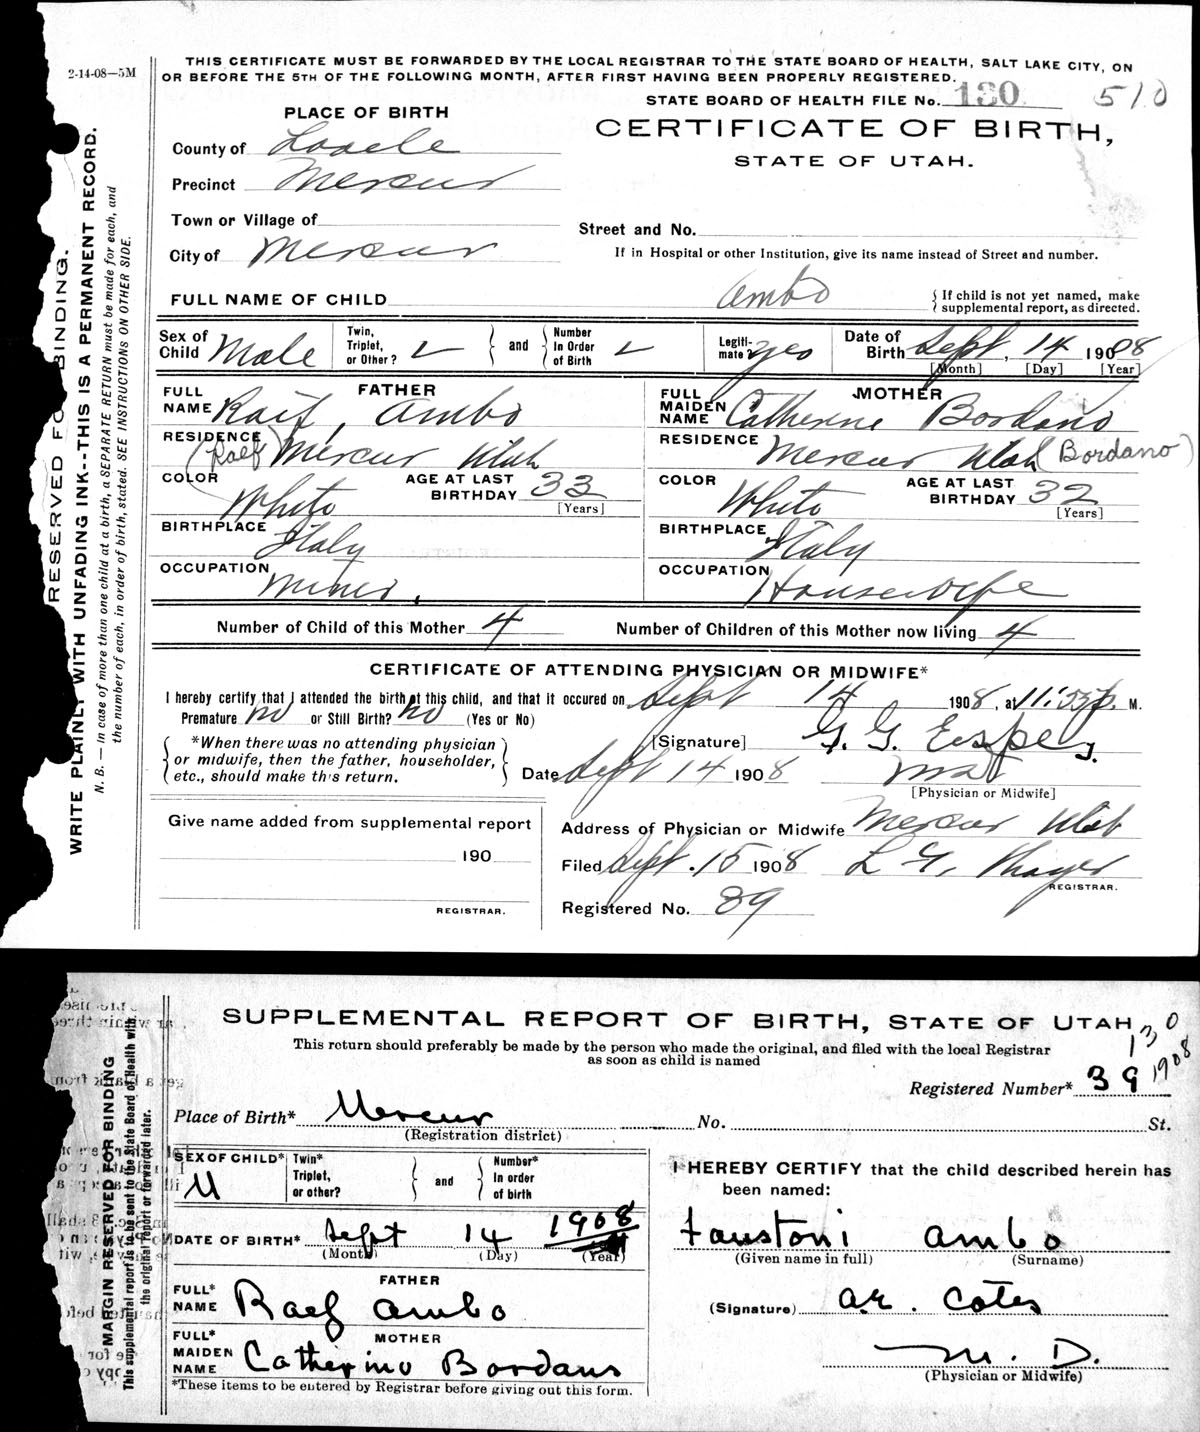 2-14-08—5M
THIS CERTIFICATE MUST BE FORWARDED BY THE LOCAL REGISTRAR TO THE STATE BOARD OF HEALTH, SALT LAKE CITY, ON
OR BEFORE THE 5TH OF THE FOLLOWING MONTH, AFTER FIRST HAVING BEEN PROPERLY REGISTERED.
STATE BOARD OF HEALTH FILE No. 130 510
PLACE OF BIRTH
CERTIFICATE OF BIRTH,
STATE OF UTAH.
County of
Precinct Mercur
Town or Village of
Street and No.
City of Mercur
If in Hospital or other Institution, give its name instead of Street and number.
FULL NAME OF CHILD Ambo { If child is not yet named, make supplemental report, as directed.
Sex of Child Male
Twin, Triplet, or Other? and Number In Order of Birth
Legitimate? yes
Date of Birth Sept, 14 1908
[Month] [Day] [Year]
FATHER
FULL NAME Raif, Ambo
RESIDENCE (Raef) Mercur Utah
COLOR White AGE AT LAST BIRTHDAY 33 [Years]
BIRTHPLACE Italy
OCCUPATION Miner.
MOTHER
FULL MAIDEN NAME Catherine Bordano
RESIDENCE Mercur Utah (Bordano)
COLOR White AGE AT LAST BIRTHDAY 32 [Years]
BIRTHPLACE Italy
OCCUPATION Housewife
Number of Child of this Mother 4 Number of Children of this Mother now living 4
CERTIFICATE OF ATTENDING PHYSICIAN OR MIDWIFE*
I hereby certify that I attended the birth of this child, and that it occured on Sept 14 1908, at 11:55 p. M.
Premature no or Still Birth? no (Yes or No)
[Signature] G. G.
*When there was no attending physician
or midwife, then the father, householder,
etc., should make this return.
Date Sept 14 1908
[Physician or Midwife]
Give name added from supplemental report
190
REGISTRAR.
Address of Physician or Midwife Mercur Utah
Filed Sept. 15 1908 L G. Thayer
REGISTRAR.
Registered No. 39
RESERVED FOR BINDING.
WRITE PLAINLY WITH UNFADING INK--THIS IS A PERMANENT RECORD.
N. B. — In case of more than one child at a birth, a SEPARATE RETURN must be made for each, and
the number of each, in order of birth, stated. SEE INSTRUCTIONS ON OTHER SIDE.
SUPPLEMENTAL REPORT OF BIRTH, STATE OF UTAH
This return should preferably be made by the person who made the original, and filed with the local Registrar
as soon as child is named
130
1908
Registered Number* 39
Place of Birth* Mercur No. St.
(Registration district)
SEX OF CHILD* M
Twin* Triplet, or other? and Number* In order of birth
DATE OF BIRTH* Sept 14 1908
(Month) (Day) (Year)
FATHER
FULL* NAME Raef Ambo
MOTHER
FULL* MAIDEN NAME Catherine Bordano
*These items to be entered by Registrar before giving out this form.
I HEREBY CERTIFY that the child described herein has
been named:
Faustoni Ambo
(Given name in full) (Surname)
(Signature) A.E. Cotes
M. D.
(Physician or Midwife)
MARGIN RESERVED FOR BINDING
This supplemental report is to be sent to the State Board of Health with
the original report or forwarded later.